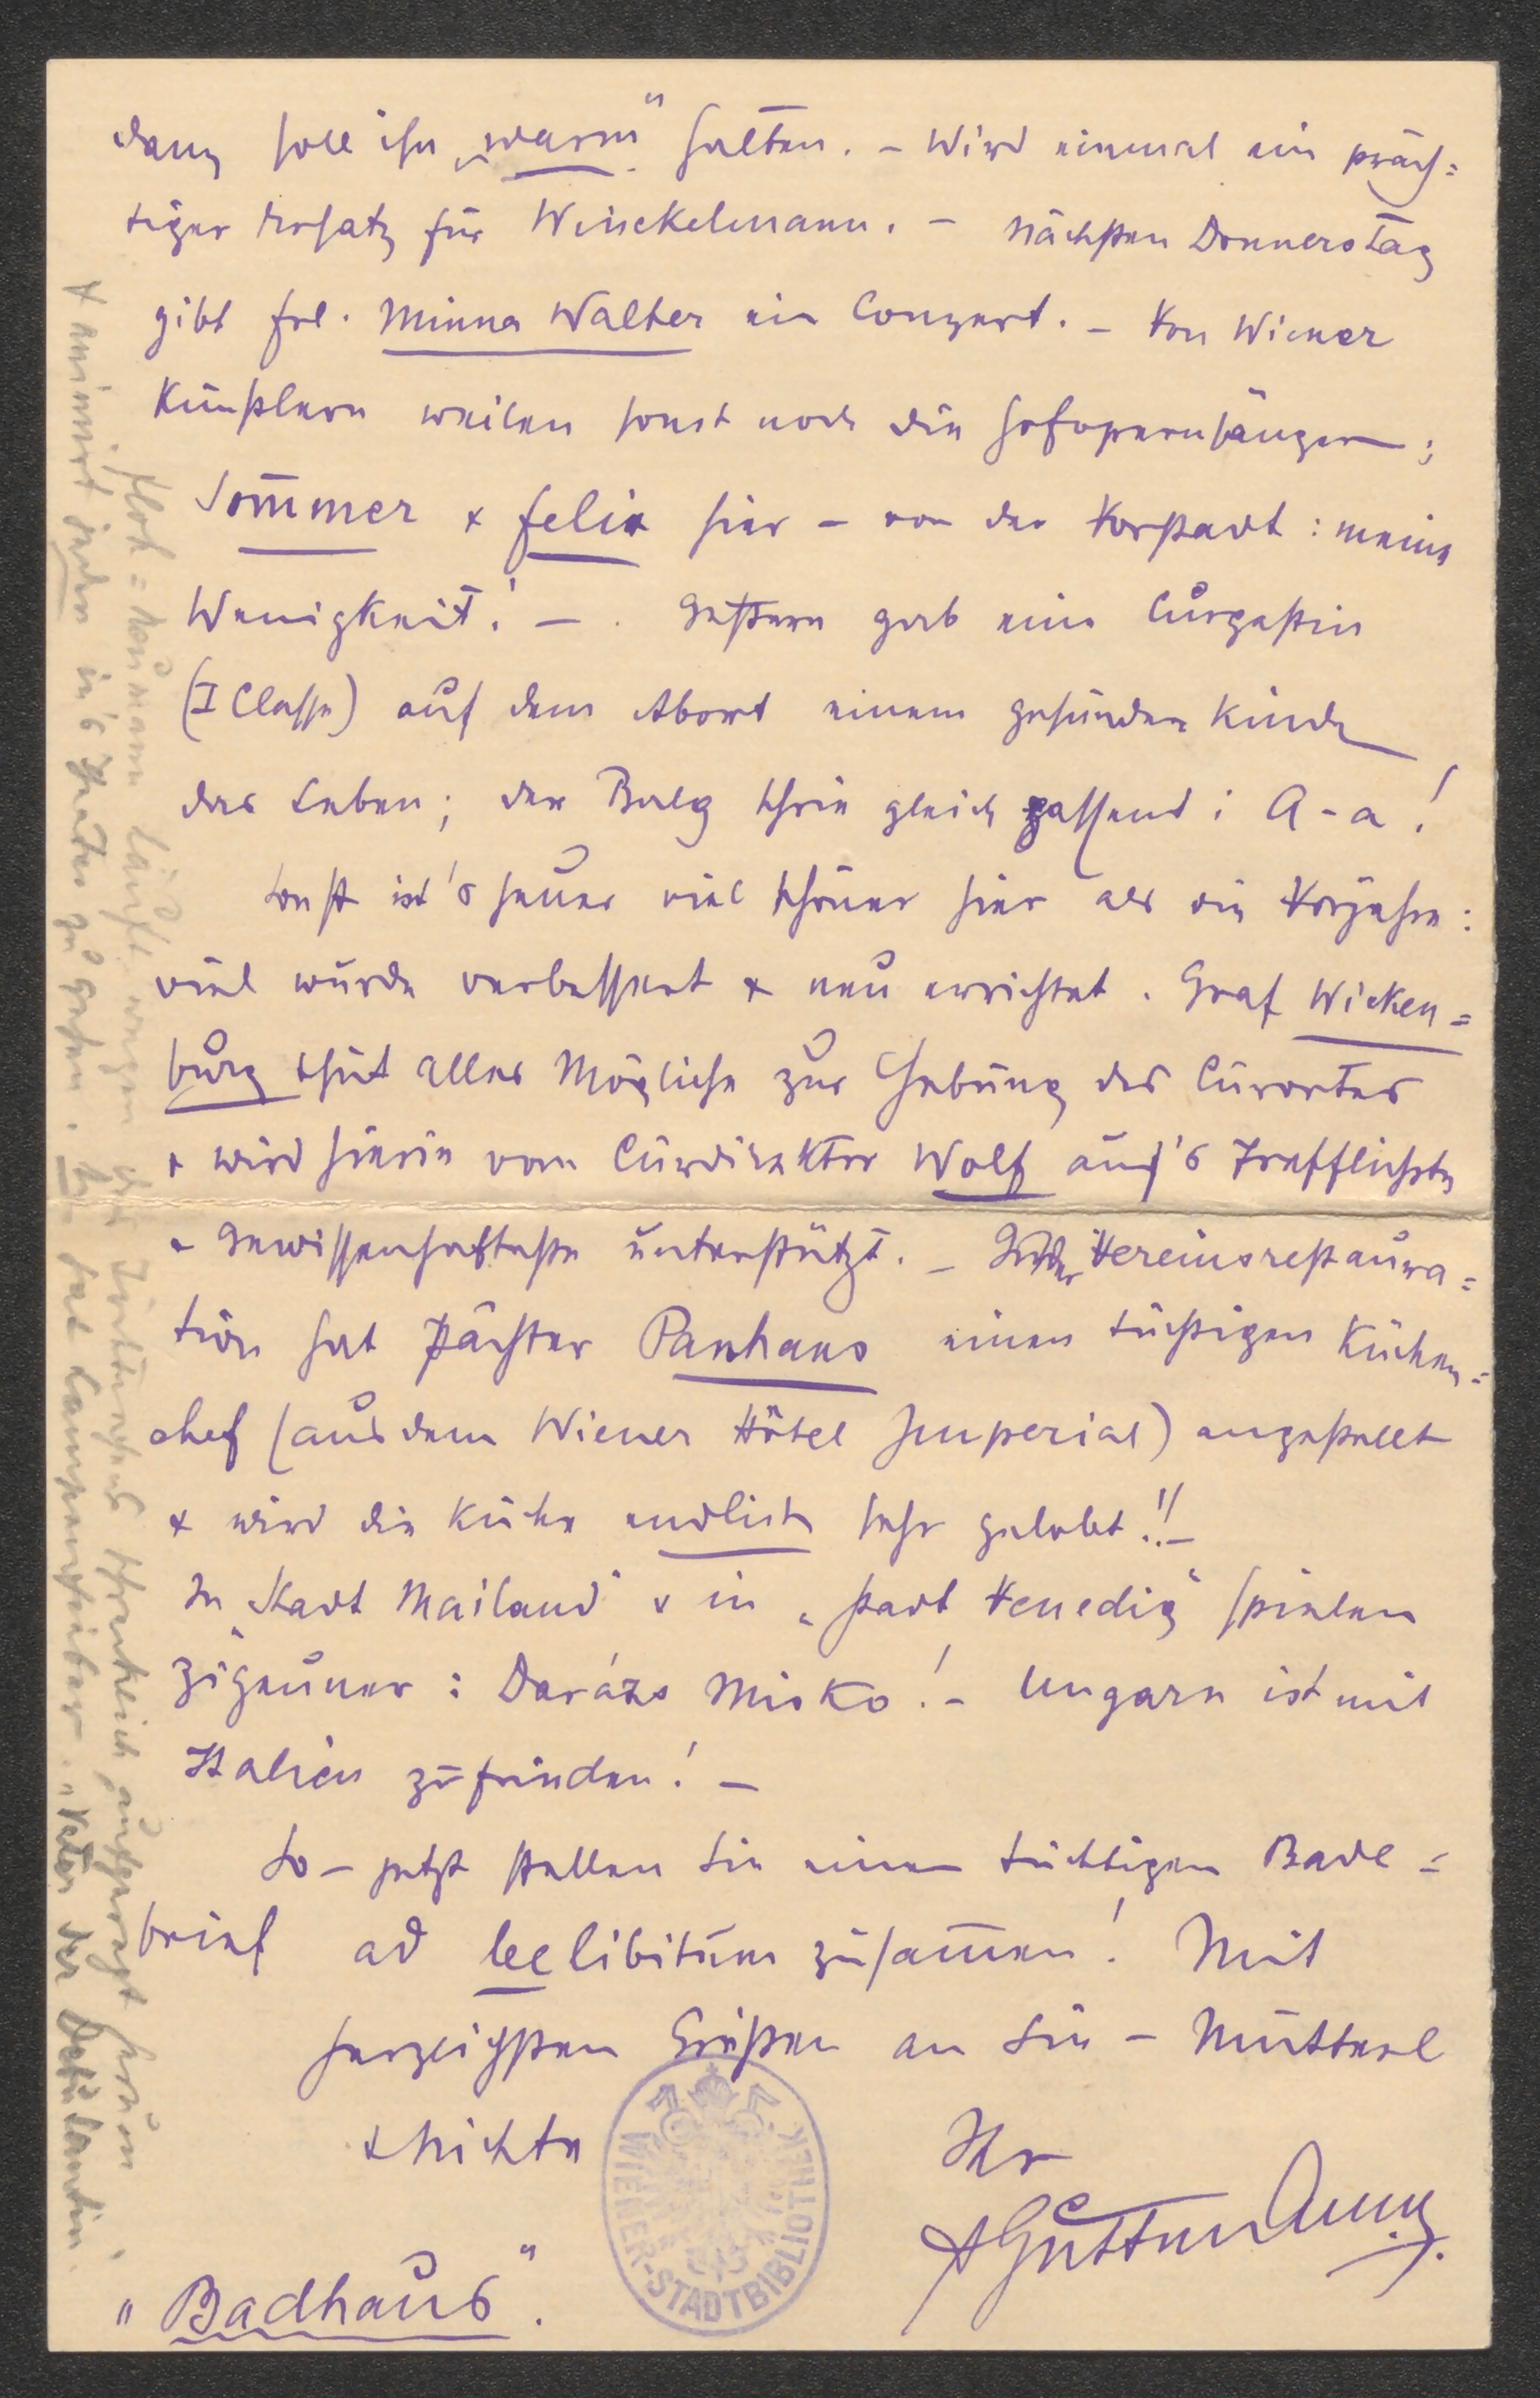 dann soll ihn „warm“ halten. – Wird einmal ein präch=
tiger Ersatz für Winckelmann. – Nächsten Donnerstag
gibt Frl. Minna Walter ein Conzert. – Von Wiener
Künstlern weilen sonst noch die Hofopernsänger:
Sommer & Felix hier – von der Vorstadt: meine
Wenigkeit! –. Gestern gab eine Curgastin
(I Classe) auf dem Abort einem gesunden Kinde
das Leben; der Balg schrie gleich passend: A-a!
Sonst ist's heuer viel schöner hier als die Vorjahre:
viel wurde verbessert & neu errichtet. Graf Wicken=
burg thut alles Mögliche zur Hebung des Curortes
& wird hierin vom Curdirektor Wolf auf's Trefflichste
& Gewissenhafteste unterstützt. – In der Vereinsrestaura=
tion hat Pächter Panhans einen tüchtigen Küchen=
chef (aus dem Wiener Hôtel Imperial) angestellt
& wird die Küche endlich sehr gelobt!! –
In „Stadt Mailand“ & in „Stadt Venedig“ spielen
Zigeuner: Darázs Misko! – Ungarn ist mit
Italien zufrieden! –
So – jetzt stellen Sie einen tüchtigen Bade=
brief ad leelibitum zusammen! Mit
herzlichsten Grüßen an Sie – Mutterl
& Nichte
Ihr
AGuttmann
„Badhaus“.
läuft wegen Theater schrecklich aufgeregt herum
& animirt jeden in's Theater zu gehen. hat Lampenfieber. „Vater der Debutantin.“
WIENER-STADTBIBLIOTHEK